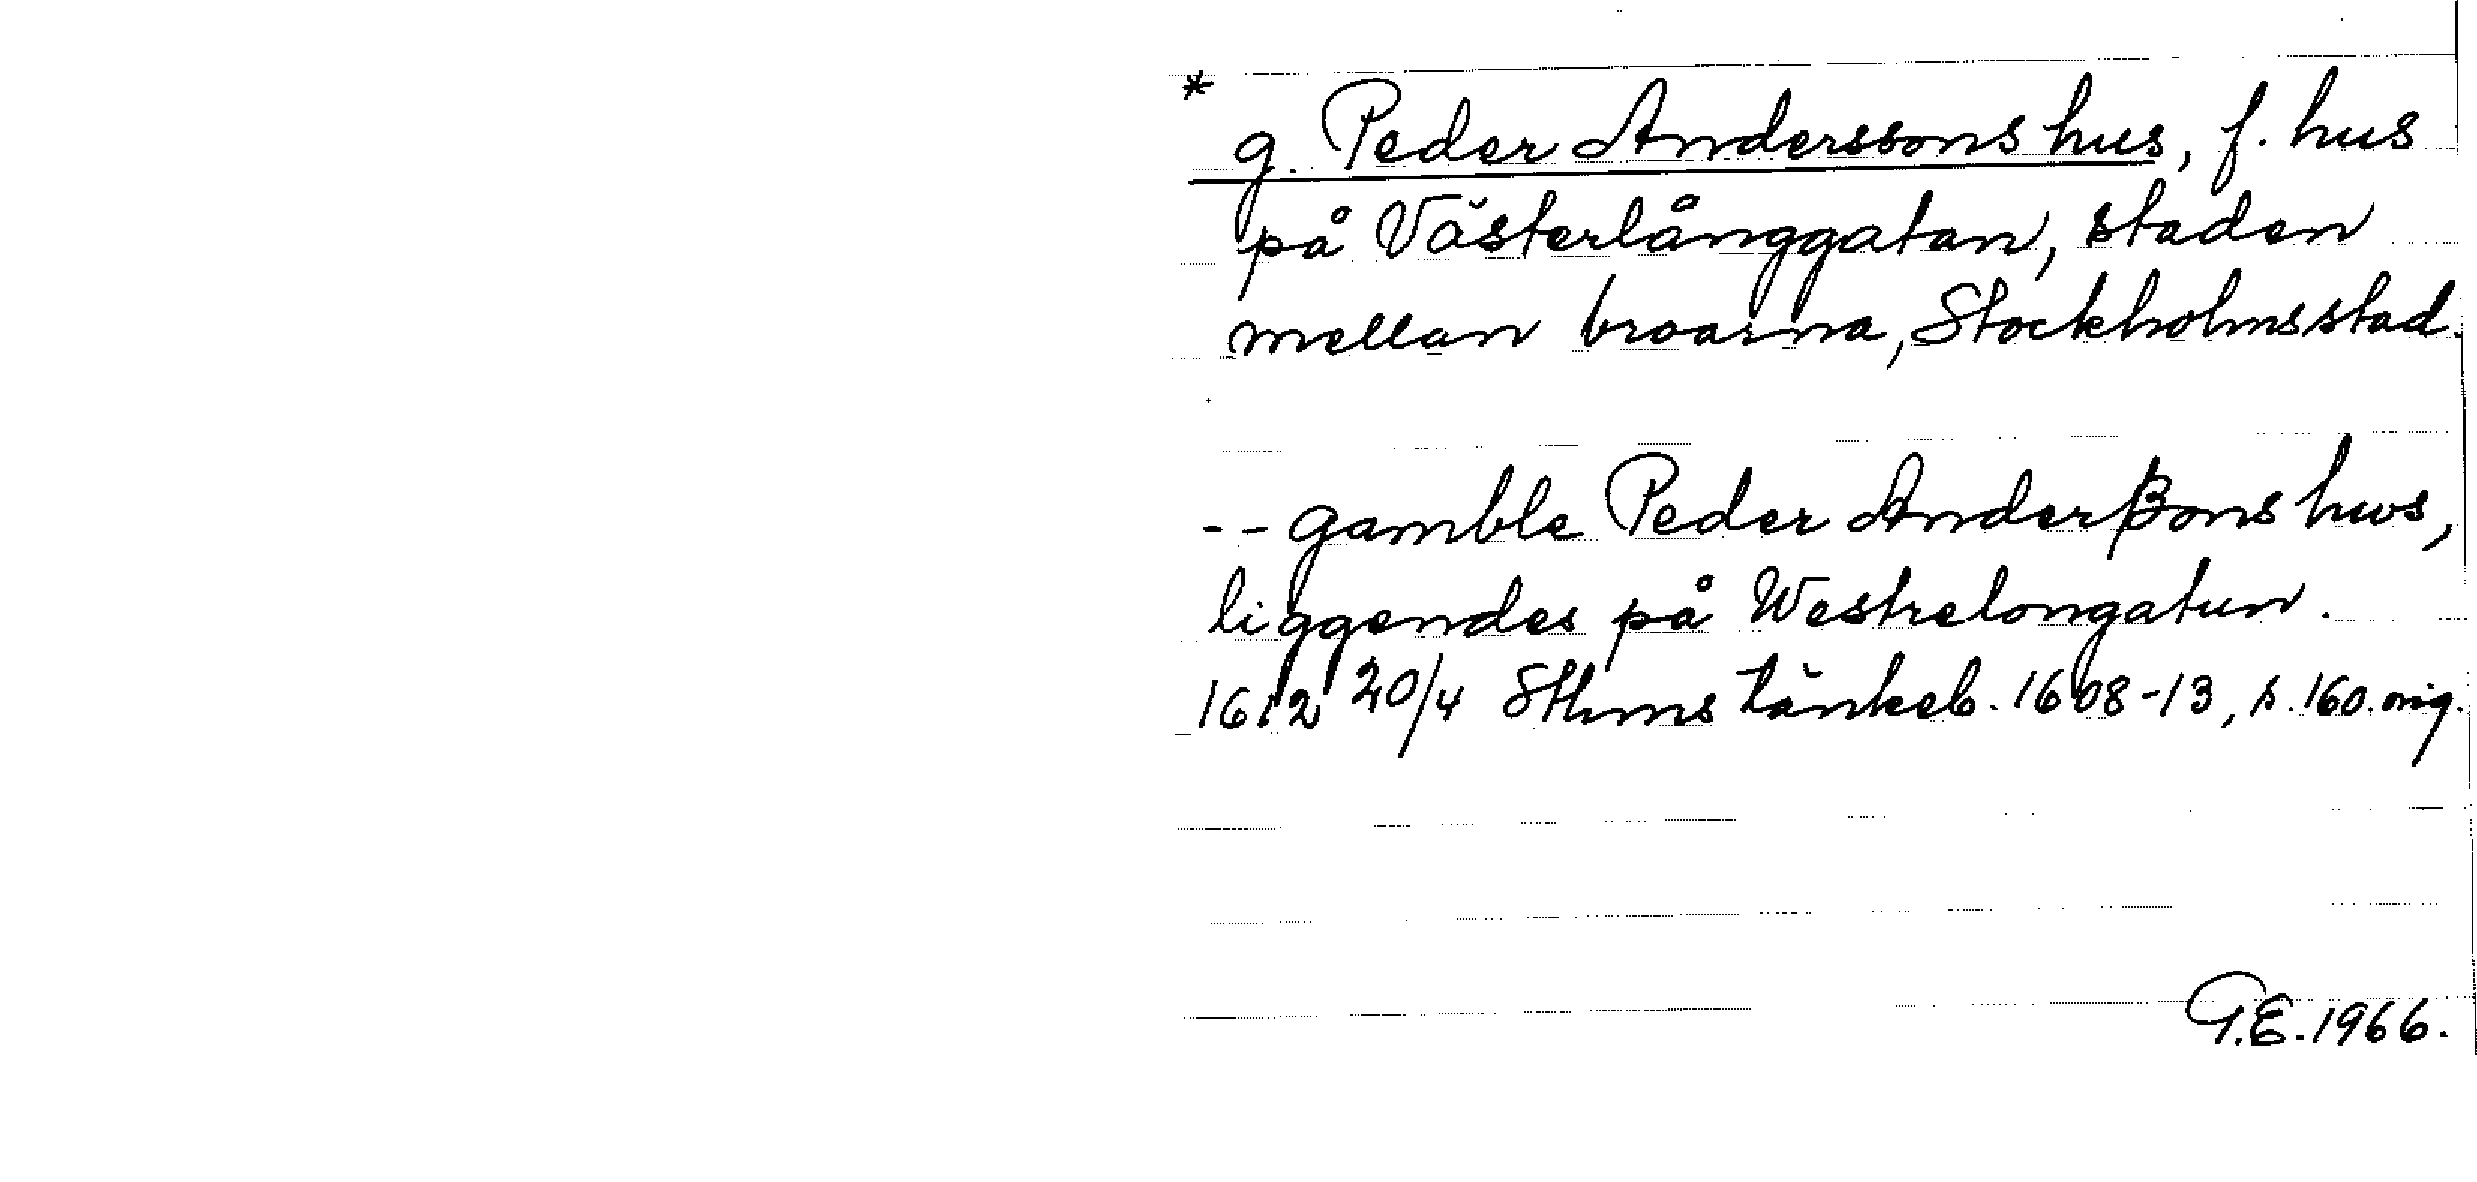 * g. Peder Anderssons hus, f. hus
på Västerlånggatan, staden
mellan broarna, Stockholms stad.
-- gamble Peder Anderßons hws,
liggendes på Westrelongatun.
1612 20/4 Sthms tänkeb. 1608-13, s. 160. orig.
G.E. 1966.